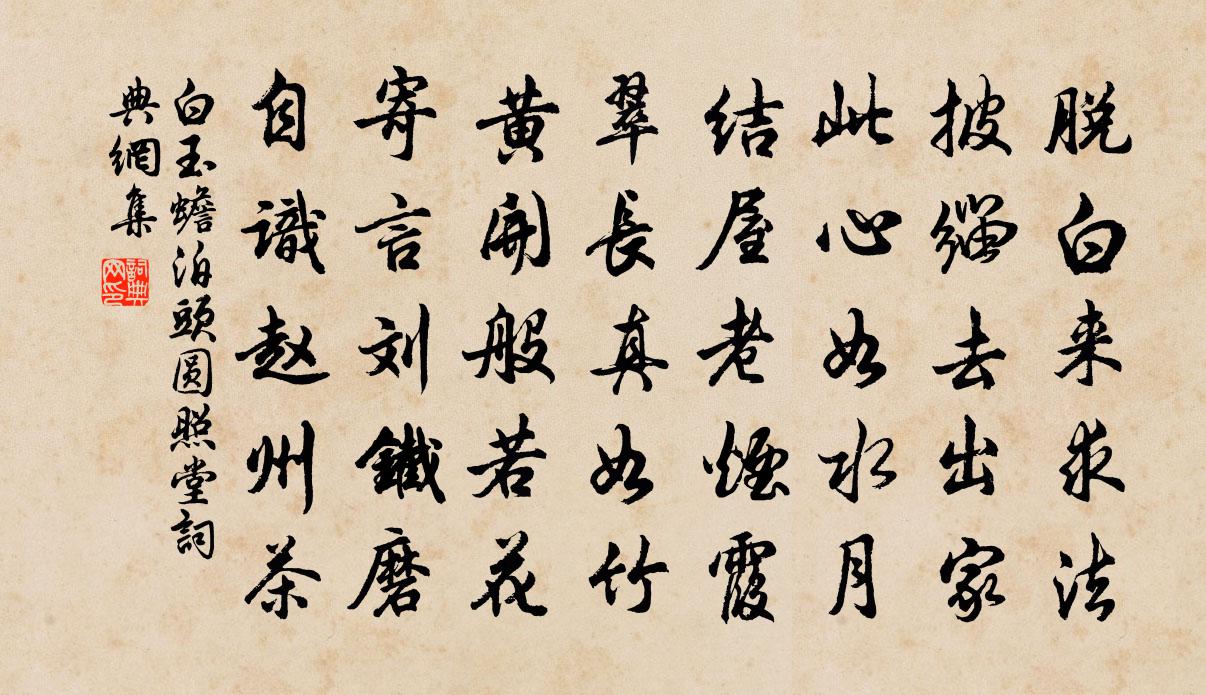 脱白来求法
披緇去出家
此心如水月
结屋老煙霞
翠長真如竹
黄開般若花
寄言刘鐵磨
自識赵州茶
白玉蟾泊頭圓照堂詞
典網集
詞典
网印